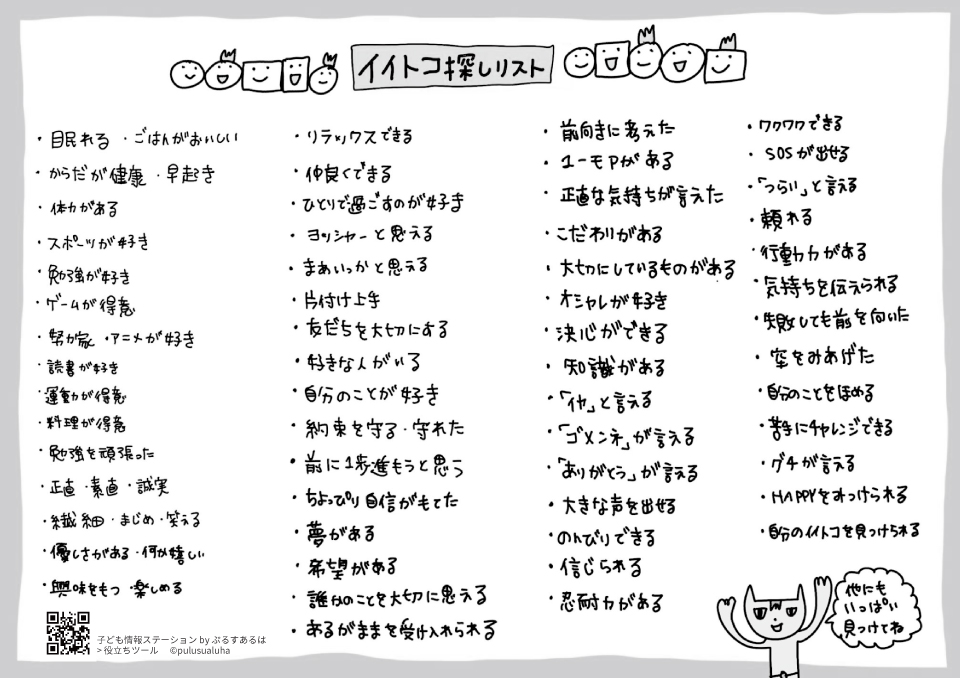 イイトコ探しリスト
・眠れる ・ごはんがおいしい
・からだが健康 ・早起き
・体力がある
・スポーツが好き
・勉強が好き
・ゲームが得意
・努力家 ・アニメが好き
・読書が好き
・運動が得意
・料理が得意
・勉強を頑張った
・正直 ・素直 ・誠実
・繊細 ・まじめ ・笑える
・優しさがある ・何か嬉しい
・興味をもつ ・楽しめる
・リラックスできる
・仲良くできる
・ひとりで過ごすのが好き
・ヨッシャーと思える
・まあいっかと思える
・片付け上手
・友だちを大切にする
・好きな人がいる
・自分のことが好き
・約束を守る・守れた
・前に1歩進もうと思う
・ちょっぴり自信がもてた
・夢がある
・希望がある
・誰かのことを大切に思える
・あるがままを受け入れられる
・前向きに考えた
・ユーモアがある
・正直な気持ちが言えた
・こだわりがある
・大切にしているものがある
・オシャレが好き
・決心ができる
・知識がある
・「イヤ」と言える
・「ゴメンネ」が言える
・「ありがとう」が言える
・大きな声を出せる
・のんびりできる
・信じられる
・忍耐力がある
・ワクワクできる
・SOSが出せる
・「つらい」と言える
・頼れる
・行動力がある
・気持ちを伝えられる
・失敗しても前を向いた
・空をみあげた
・自分のことをほめる
・苦手にチャレンジできる
・グチが言える
・HAPPYをみっけられる
・自分のイイトコを見つけられる
他にも
いっぱい
見つけてね
子ども情報ステーション by ぷるすあるは
> 役立ちツール ©pulusualuha